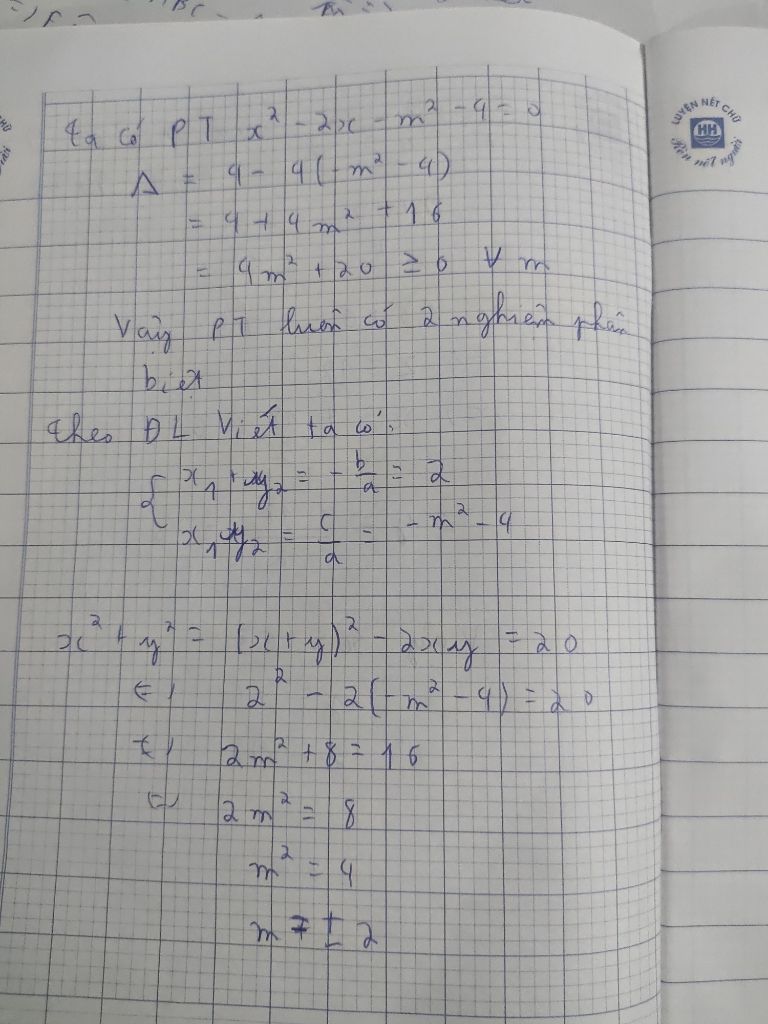 Ta có PT x² - 2x - m² - 4 = 0
Δ = 4 - 4(-m² - 4)
= 4 + 4m² + 16
= 4m² + 20 ≥ 0 ∀ m
Vậy PT luôn có 2 nghiệm phân
biệt
Theo ĐL Viét ta có:
{ x₁ + x₂ = - b/a = 2
x₁x₂ = c/a = -m² - 4
x² + y² = (x + y)² - 2xy = 20
⇔ 2² - 2(-m² - 4) = 20
⇔ 2m² + 8 = 16
⇔ 2m² = 8
m² = 4
m = ± 2
LUYỆN NÉT CHỮ
HH
Rèn nết người